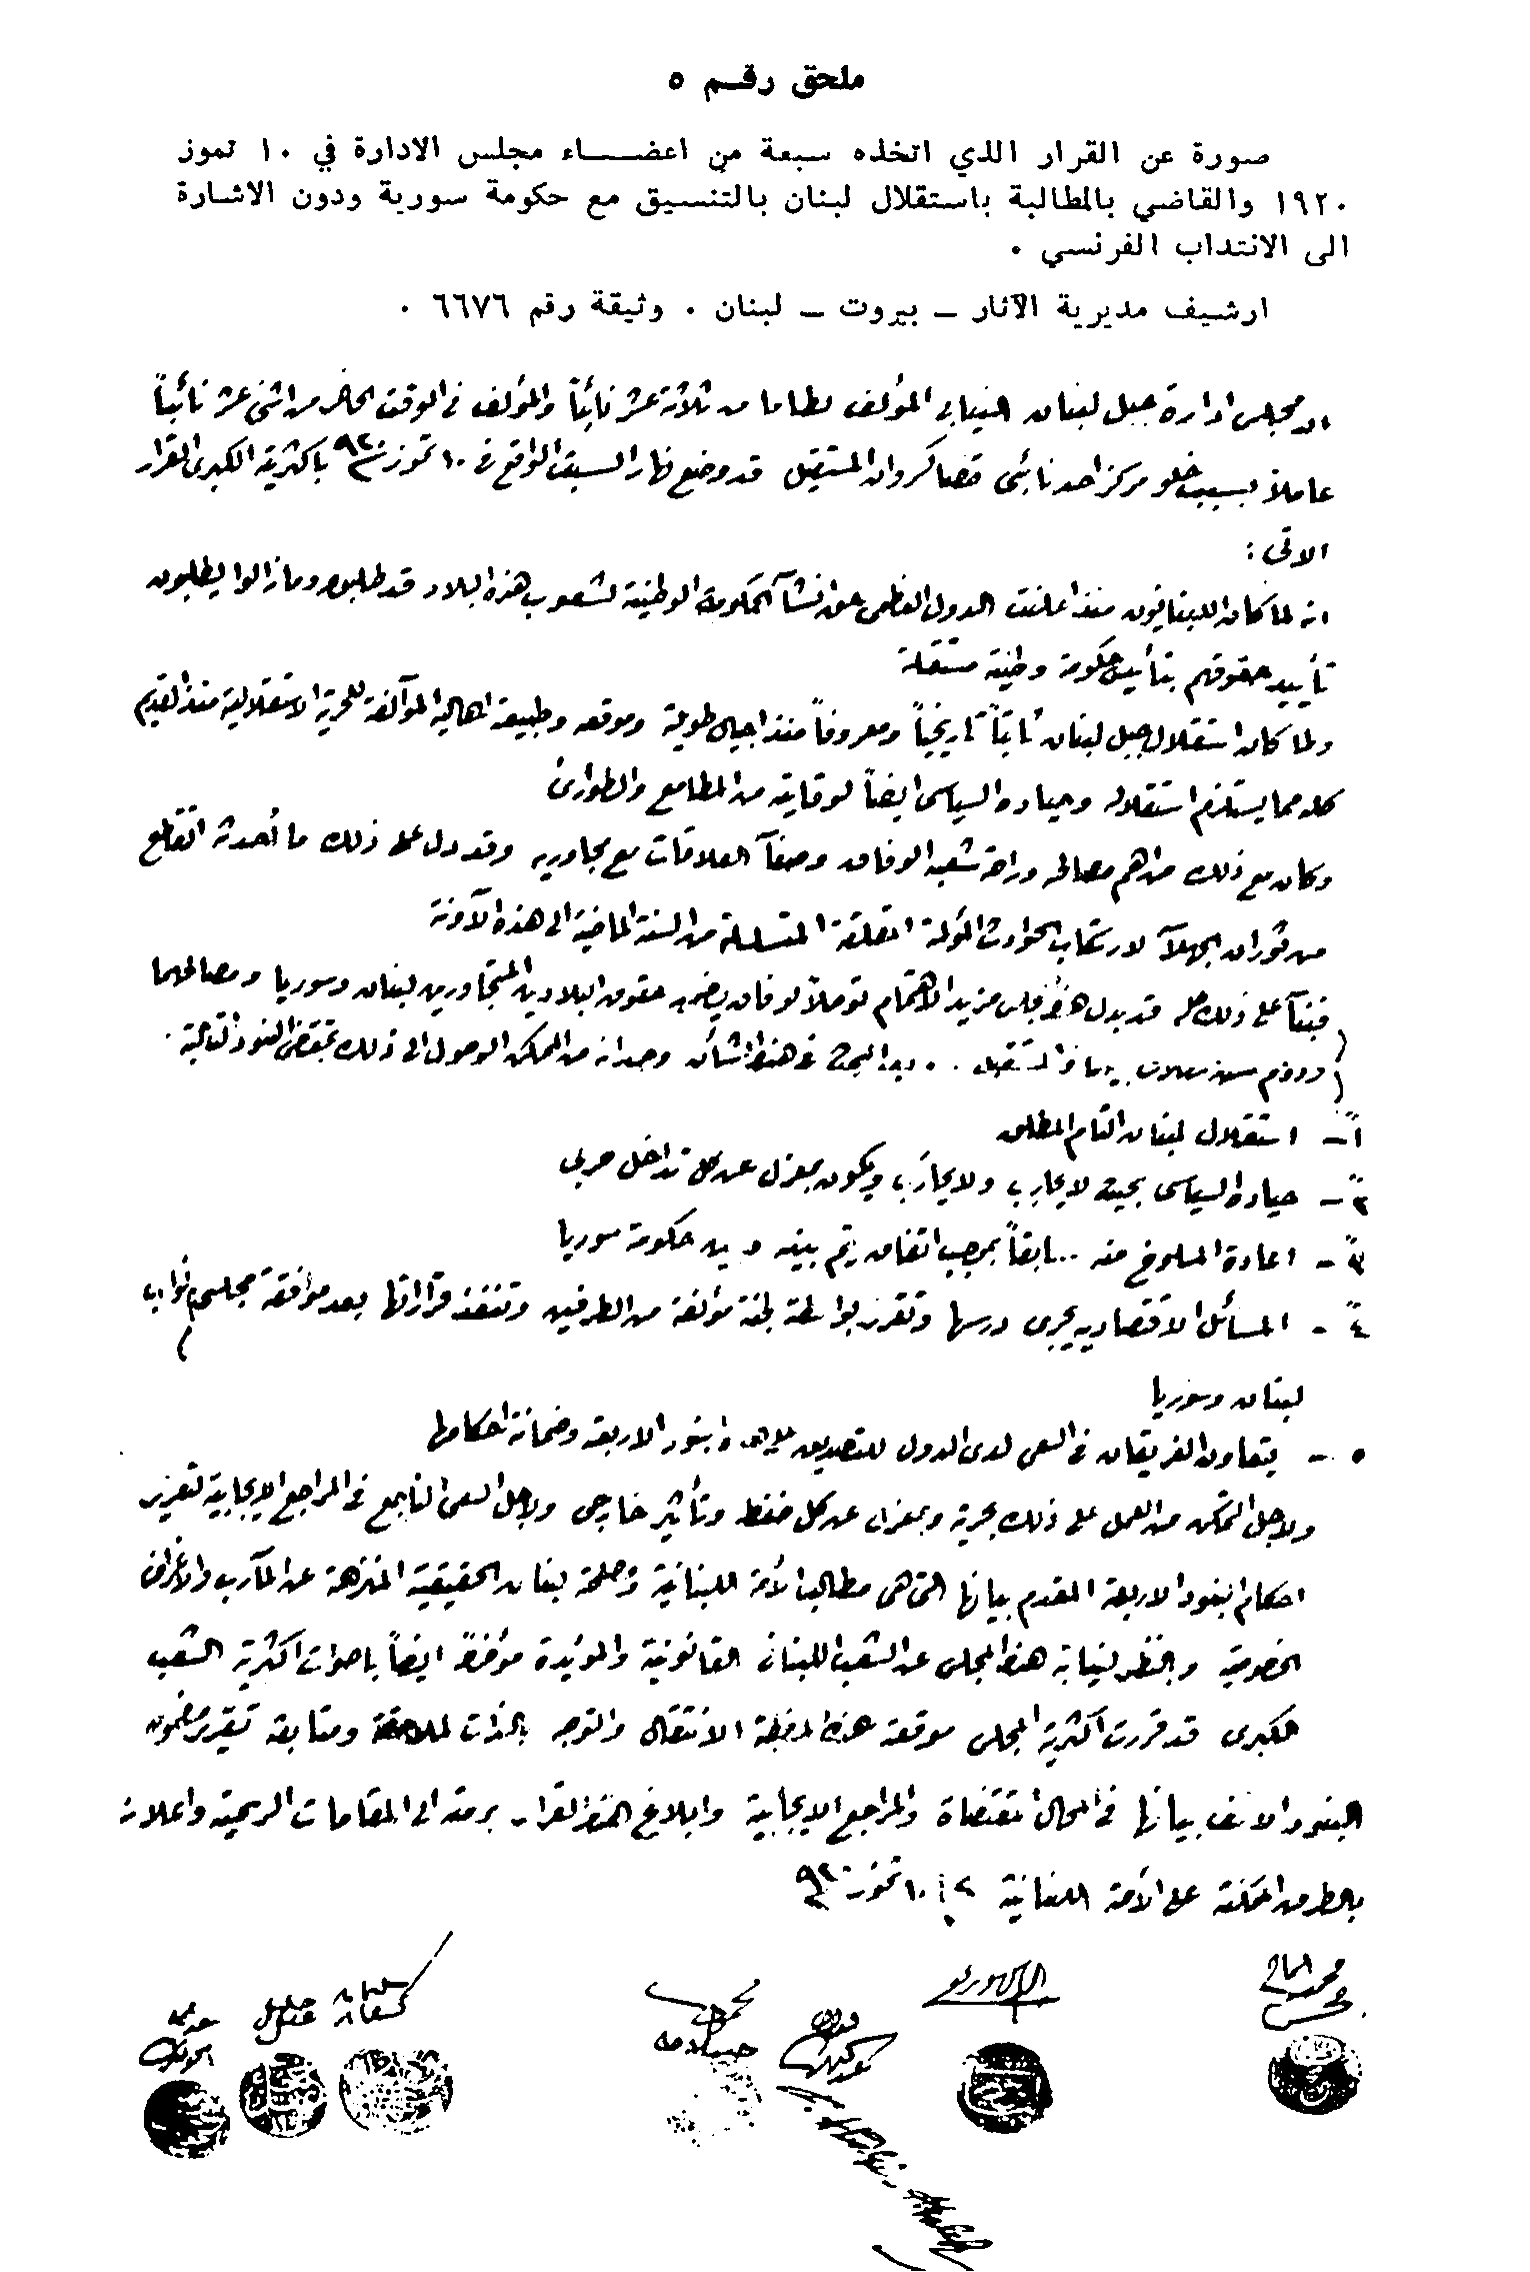 ملحق رقم ٥
صورة عن القرار الذي اتخذه سبعة من اعضاء مجلس الادارة في ١٠ تموز
١٩٢٠ والقاضي بالمطالبة باستقلال لبنان بالتنسيق مع حكومة سورية ودون الاشارة
الى الانتداب الفرنسي .
ارشيف مديرية الآثار – بيروت – لبنان . وثيقة رقم ٦٦٧٦ .
ان مجلس ادارة جبل لبنان النيابي المؤلف نظاما من ثلاثة عشر نائباً والمؤلف في الوقت الحاضر من اثني عشر نائباً
عاملاً بسبب خلو مركز احد نائبي قضا كسروان المستقيل قد وضع نهار السبت الواقع في ١٠ تموز سنة ٩٢٠ باكثريته الكبرى القرار
الاتي :
انه لما كان اللبنانيون منذ اعلنت الدول العظمى حق انشآ الحكومة الوطنية لشعوب هذه البلاد قد طلبوا وما زالوا يطلبون
تأييد حقوقهم بتأييد حكومة وطنية مستقلة
ولما كان استقلال جبل لبنان ثابتاً تاريخياً ومعروفاً منذ اجيال طويلة وموقعه وطبيعة اهاليه المآلفة للحرية الاستقلالية منذ القديم
كله مما يستلزم استقلاله وحياده السياسي ايضاً لوقايته من المطامع والطوارئ
وكان مع ذلك من اهم مصالحه وراحة شعبه الوفاق وصفآ العلاقات مع مجاوريه وقد دل على ذلك ما أحدثه انقطع
من ثوران الجهلآ لارتكاب الحوادث المؤلمة المقلقة المتسلسلة من السنة الماضية الى هذه الآونة
فبنآ على ذلك كله قد بذل هذا المجلس مزيد الاهتمام توصلاً لوفاق يضمن حقوق البلادين المتجاورين لبنان وسوريا ومصالحهما
ودوام حسن صلات بينهما في المستقبل .. وبعد البحث في هذا الشأن وجد انه من الممكن الوصول الى ذلك بمقتضى البنود التالية .
١ – استقلال لبنان التام المطلق
٢ – حياده السياسي بحيث لا يحارِب ولا يحارَب ويكون بمعزل عن كل تداخل حربي
٣ – اعادة المسلوخ منه سابقاً بموجب اتفاق يتم بينه وبين حكومة سوريا
٤ – المسائل الاقتصاديه يجري درسها وتقرر بواسطة لجنة مؤلفة من الطرفين وتنفذ قراراتها بعد موافقة مجلسي نواب
لبنان وسوريا
٥ – يتعاون الفريقان في السعي لدى الدول للتصديق على هذه البنود الاربعة وضمانة احكامها
ولاجل التمكن من العمل على ذلك بحرية وبمعزل عن كل ضغط وتأثير خارجي ولاجل السعي الناجع في المراجع الايجابية لتعزيز
احكام البنود الاربعة المقدم بيانها التي هي مطالب الأمة اللبنانية ومصلحة لبنان الحقيقية المنزهة عن المآرب والاغراض
الخصوصية وبالنظر لنيابة هذا المجلس عن الشعب اللبناني القانونية والمؤيدة مؤخراً ايضاً باصوات اكثرية الشعب
الكبرى قد قررت اكثرية المجلس موقعة هذه المضبطة الانتقال والتوجه بالذات لملاحقة ومتابعة تقرير مضمون
البنود الانف بيانها في المحال المقتضاة والمراجع الايجابية وابلاغ هذا القرار برمته الى المقامات الرسمية واعلانه
بالطرق الممكنة على الأمة اللبنانية في ١٠ تموز سنة ٩٢٠
محمد الحاج محسن
الياس الشويري
فؤاد
محمود جنبلاط
سليمان كنعان
خليل عقل